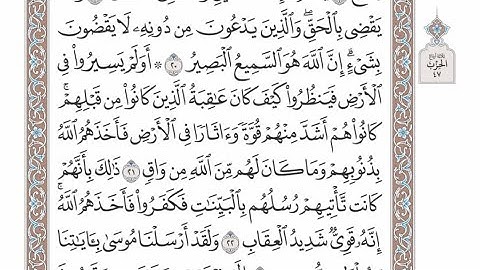 يَقْضِى بِٱلْحَقِّ ۖ وَٱلَّذِينَ يَدْعُونَ مِن دُونِهِۦ لَا يَقْضُونَ
بِشَىْءٍ ۗ إِنَّ ٱللَّهَ هُوَ ٱلسَّمِيعُ ٱلْبَصِيرُ ٢٠ ۞ أَوَلَمْ يَسِيرُوا۟ فِى
ٱلْأَرْضِ فَيَنظُرُوا۟ كَيْفَ كَانَ عَٰقِبَةُ ٱلَّذِينَ كَانُوا۟ مِن قَبْلِهِمْ ۚ
كَانُوا۟ هُمْ أَشَدَّ مِنْهُمْ قُوَّةً وَءَاثَارًا فِى ٱلْأَرْضِ فَأَخَذَهُمُ ٱللَّهُ
بِذُنُوبِهِمْ وَمَا كَانَ لَهُم مِّنَ ٱللَّهِ مِن وَاقٍ ٢١ ذَٰلِكَ بِأَنَّهُمْ
كَانَت تَّأْتِيهِمْ رُسُلُهُم بِٱلْبَيِّنَٰتِ فَكَفَرُوا۟ فَأَخَذَهُمُ ٱللَّهُ ۚ
إِنَّهُۥ قَوِىٌّ شَدِيدُ ٱلْعِقَابِ ٢٢ وَلَقَدْ أَرْسَلْنَا مُوسَىٰ بِـَٔايَٰتِنَا
ٱلْحِزْبِ
٤٧